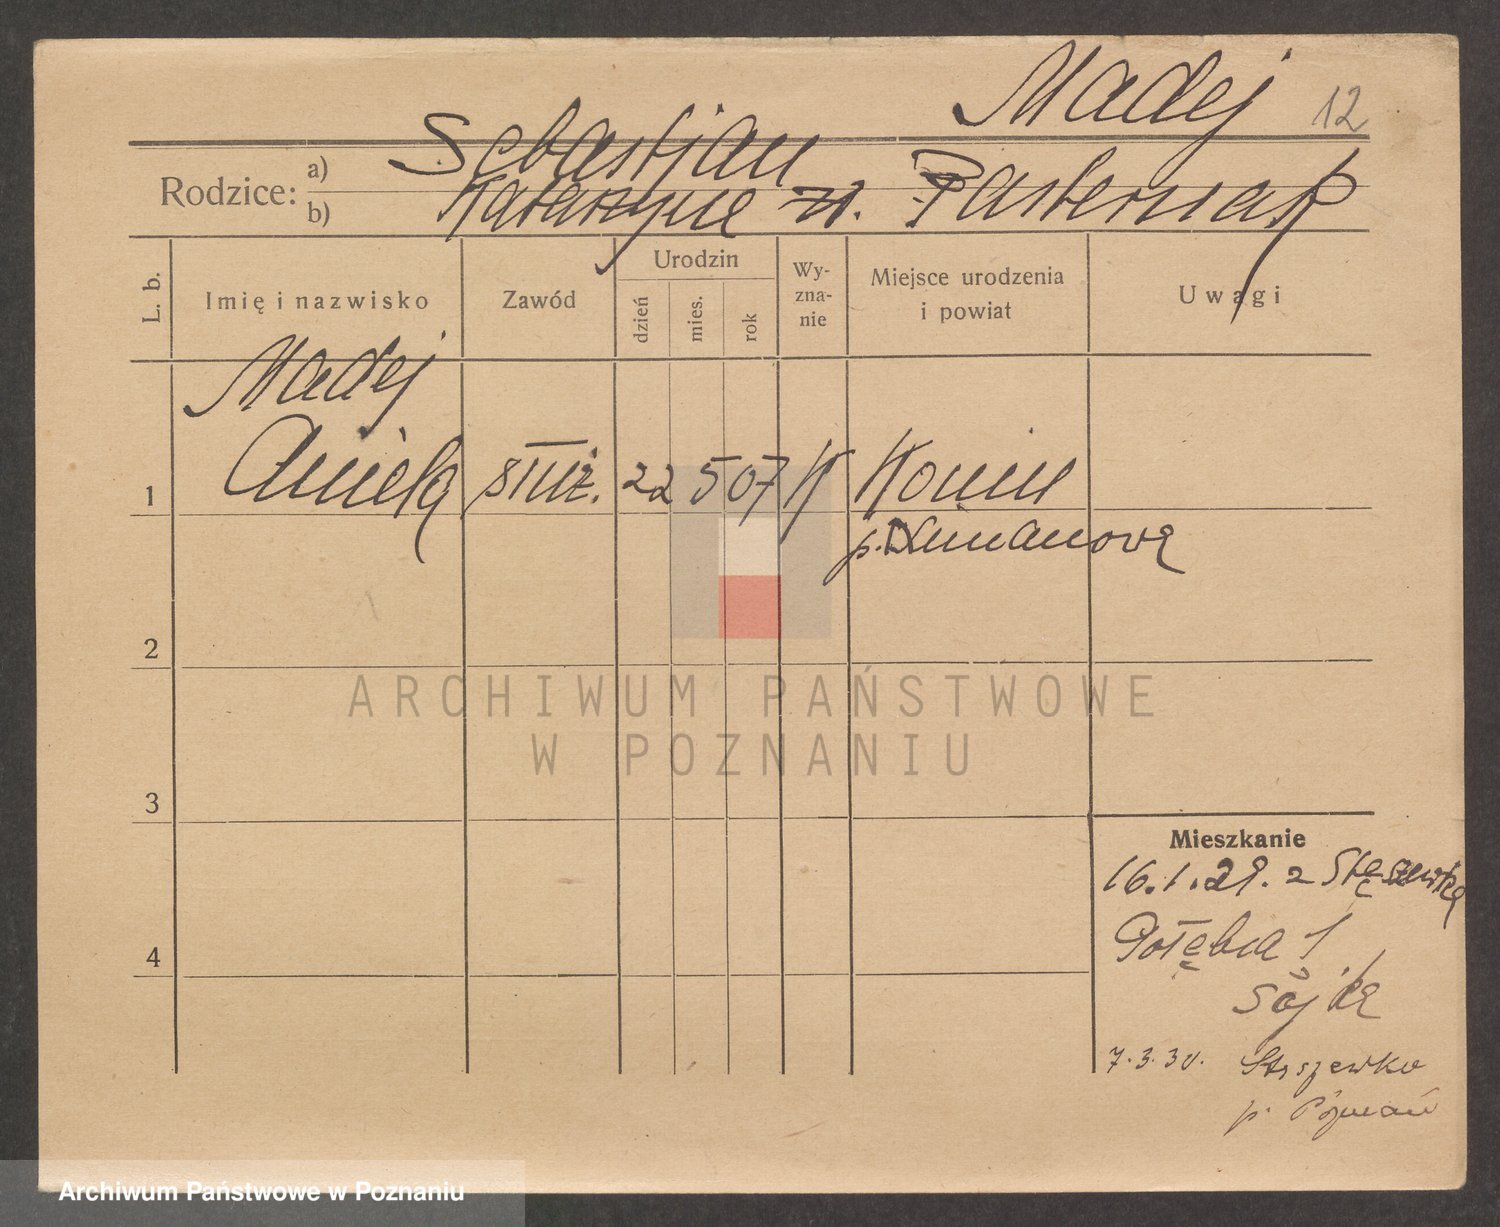 Madej 12
Sebastjan
Rodzice: a)
b) Katarzyna z d. Pasternak
L. b.
Imię i nazwisko
Zawód
Urodzin
dzień
mies.
rok
Wy-
zna-
nie
Miejsce urodzenia
i powiat
Uwagi
Madej
1 Aniela służ. 22 5 07 K
p. Limanova
2
3
4
Mieszkanie
16.1.29. z Stęszewka
Gołębia 1
Sójka
7.3.30. Stęszewko
p. Poznań
ARCHIWUM PAŃSTWOWE
W POZNANIU
Archiwum Państwowe w Poznaniu